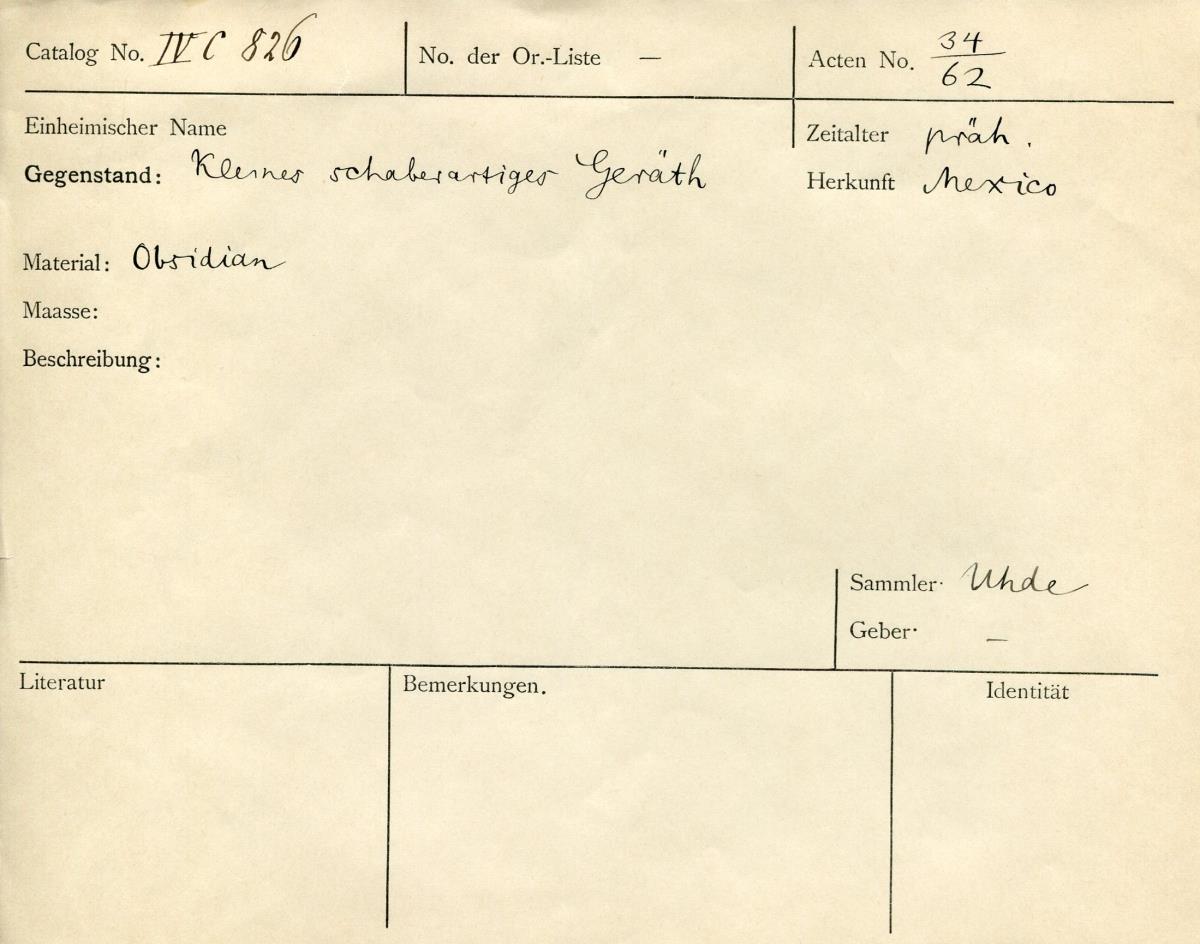 Catalog No. IV C 826 No. der Or.-Liste — Acten No. 34/62
Einheimischer Name
Zeitalter präh.
Gegenstand: Kleines schaberartiges Geräth
Herkunft Mexico
Material: Obsidian
Maasse:
Beschreibung:
Sammler· Uhde
Geber· —
Literatur
Bemerkungen.
Identität